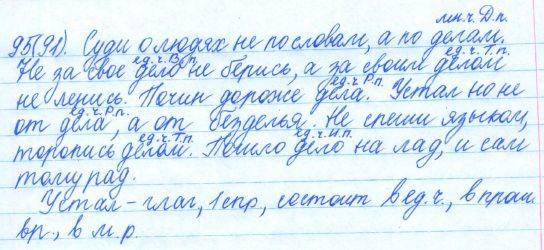 мн.ч. Д.п.
95(91). Суди о людях не по словам, а по делам.
ед.ч. В.п. ед.ч. Т.п.
Не за свое дело не берись, а за своим делом
ед.ч. Р.п.
не ленись. Почин дороже дела. Устал но не
ед.ч. Р.п.
от дела, а от безделья. Не спеши языком,
ед.ч. Т.п. ед.ч. И.п.
торопись делом. Пошло дело на лад, и сам
тому рад.
Устал – глаг, 1 спр, состоит в ед.ч., в прош
вр., в м.р.